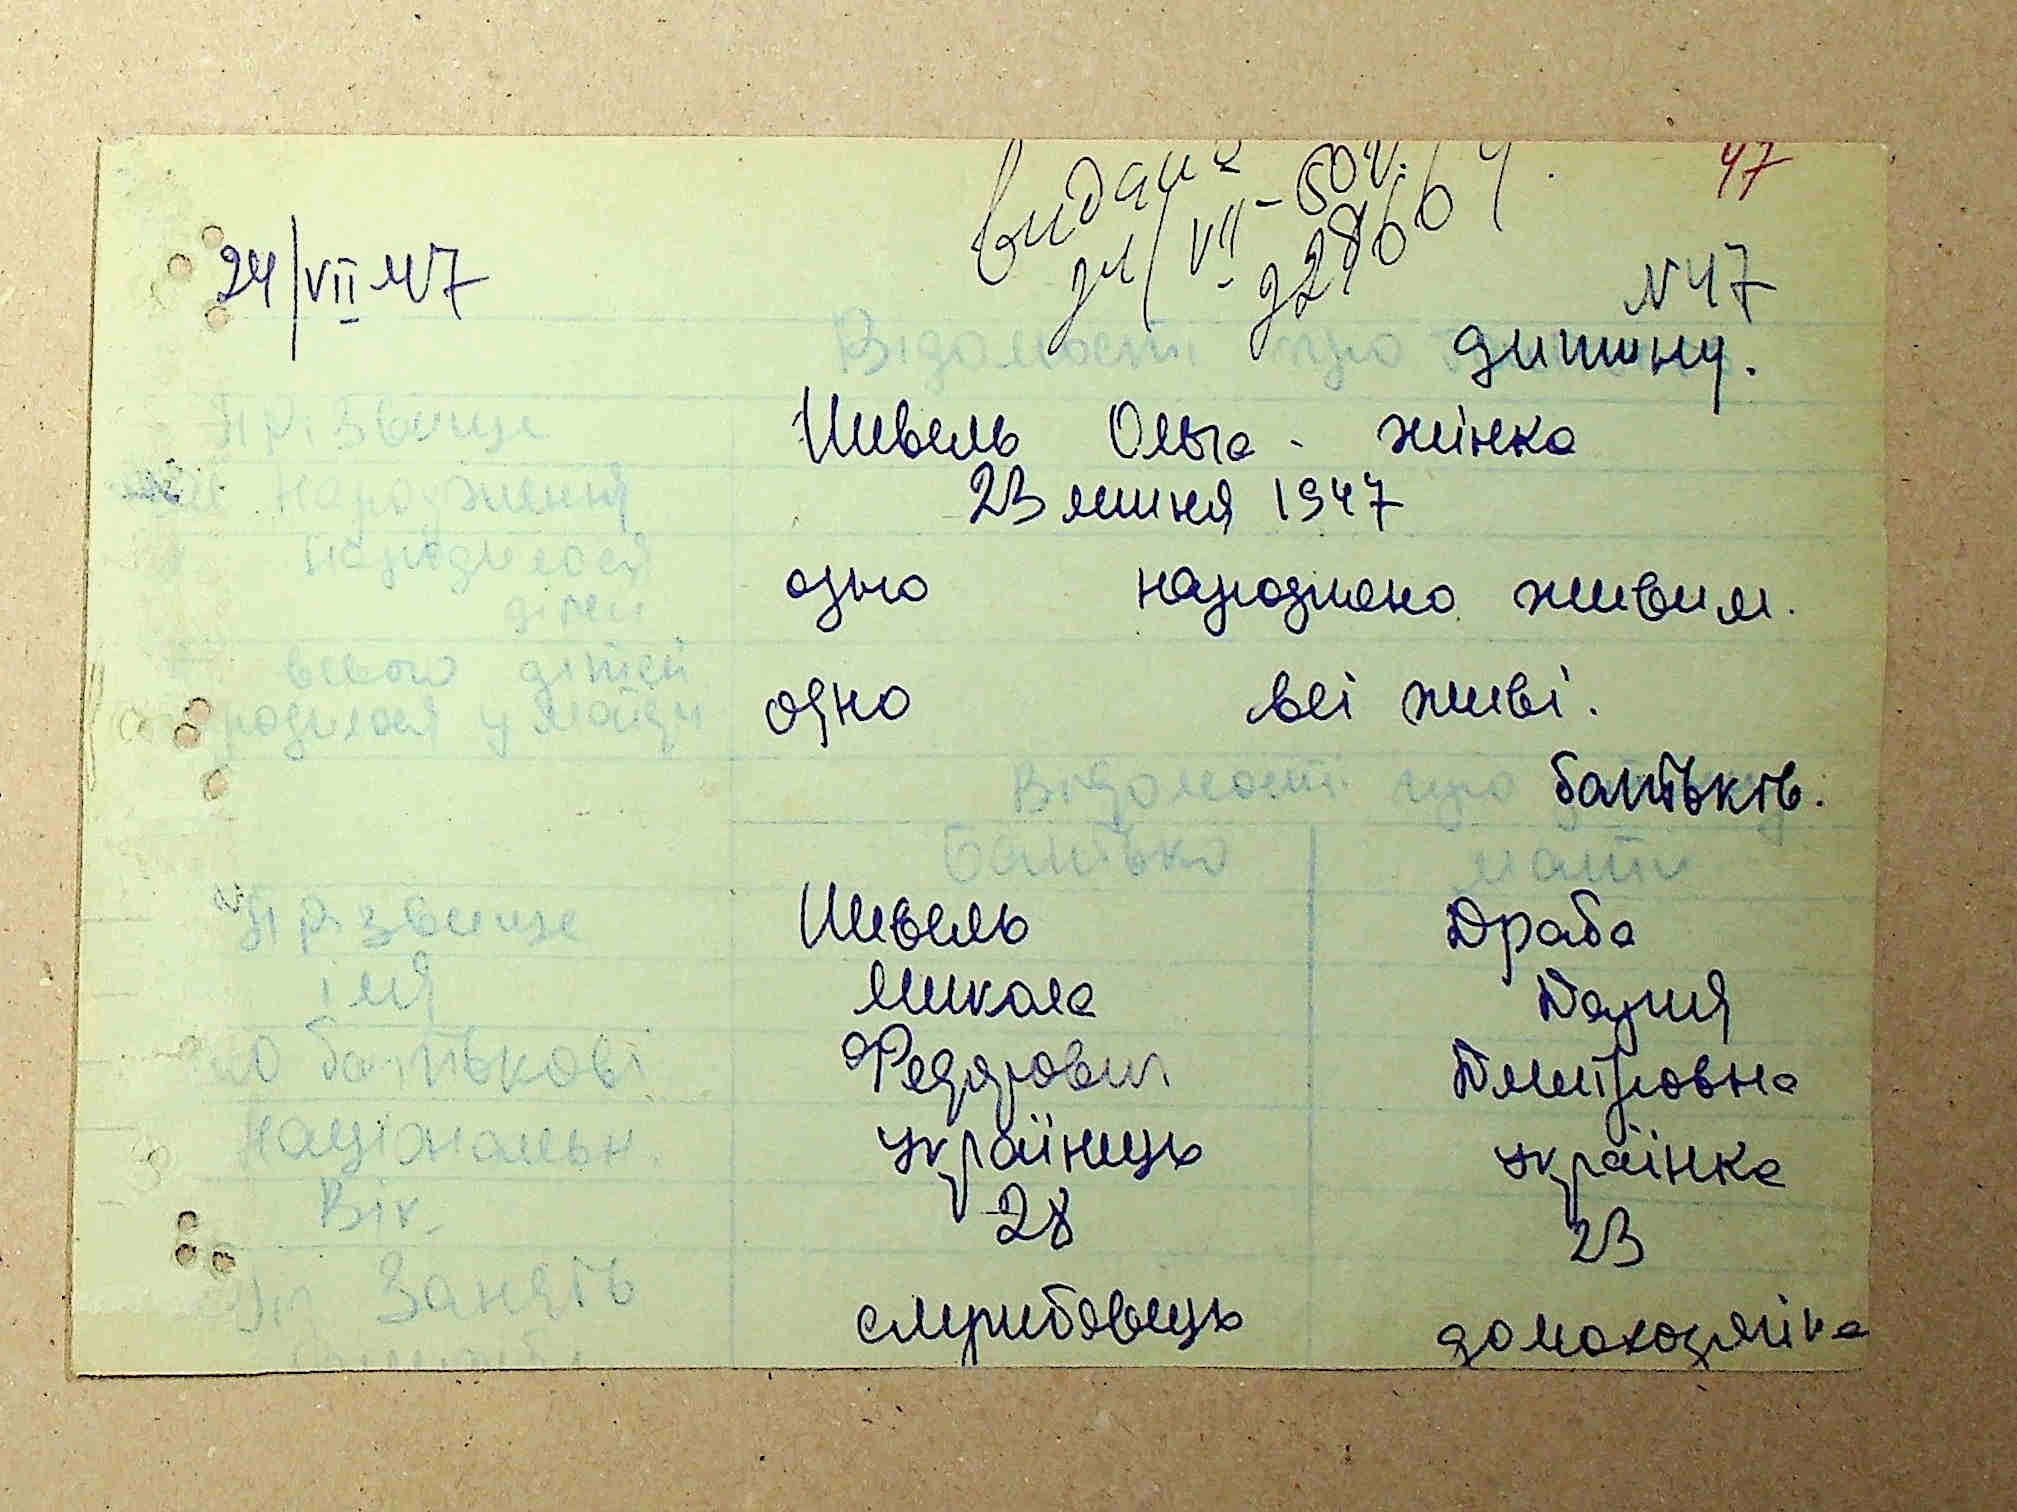 47
видана
24/VII 47
N 47
Відомості про дитину.
Прізвище Шевель Ольга - жінка
народження 23 липня 1947
народилося одно народжено живим.
дітей
всього дітей одно всі живі.
родилося у матері
Відомості про батьків.
батько мати
Прізвище Шевель Драба
імя Микола Дарія
по батькові Федорович Дмитровна
Національн. українець українка
Вік. 28 23
Занять службовець домохозяйка